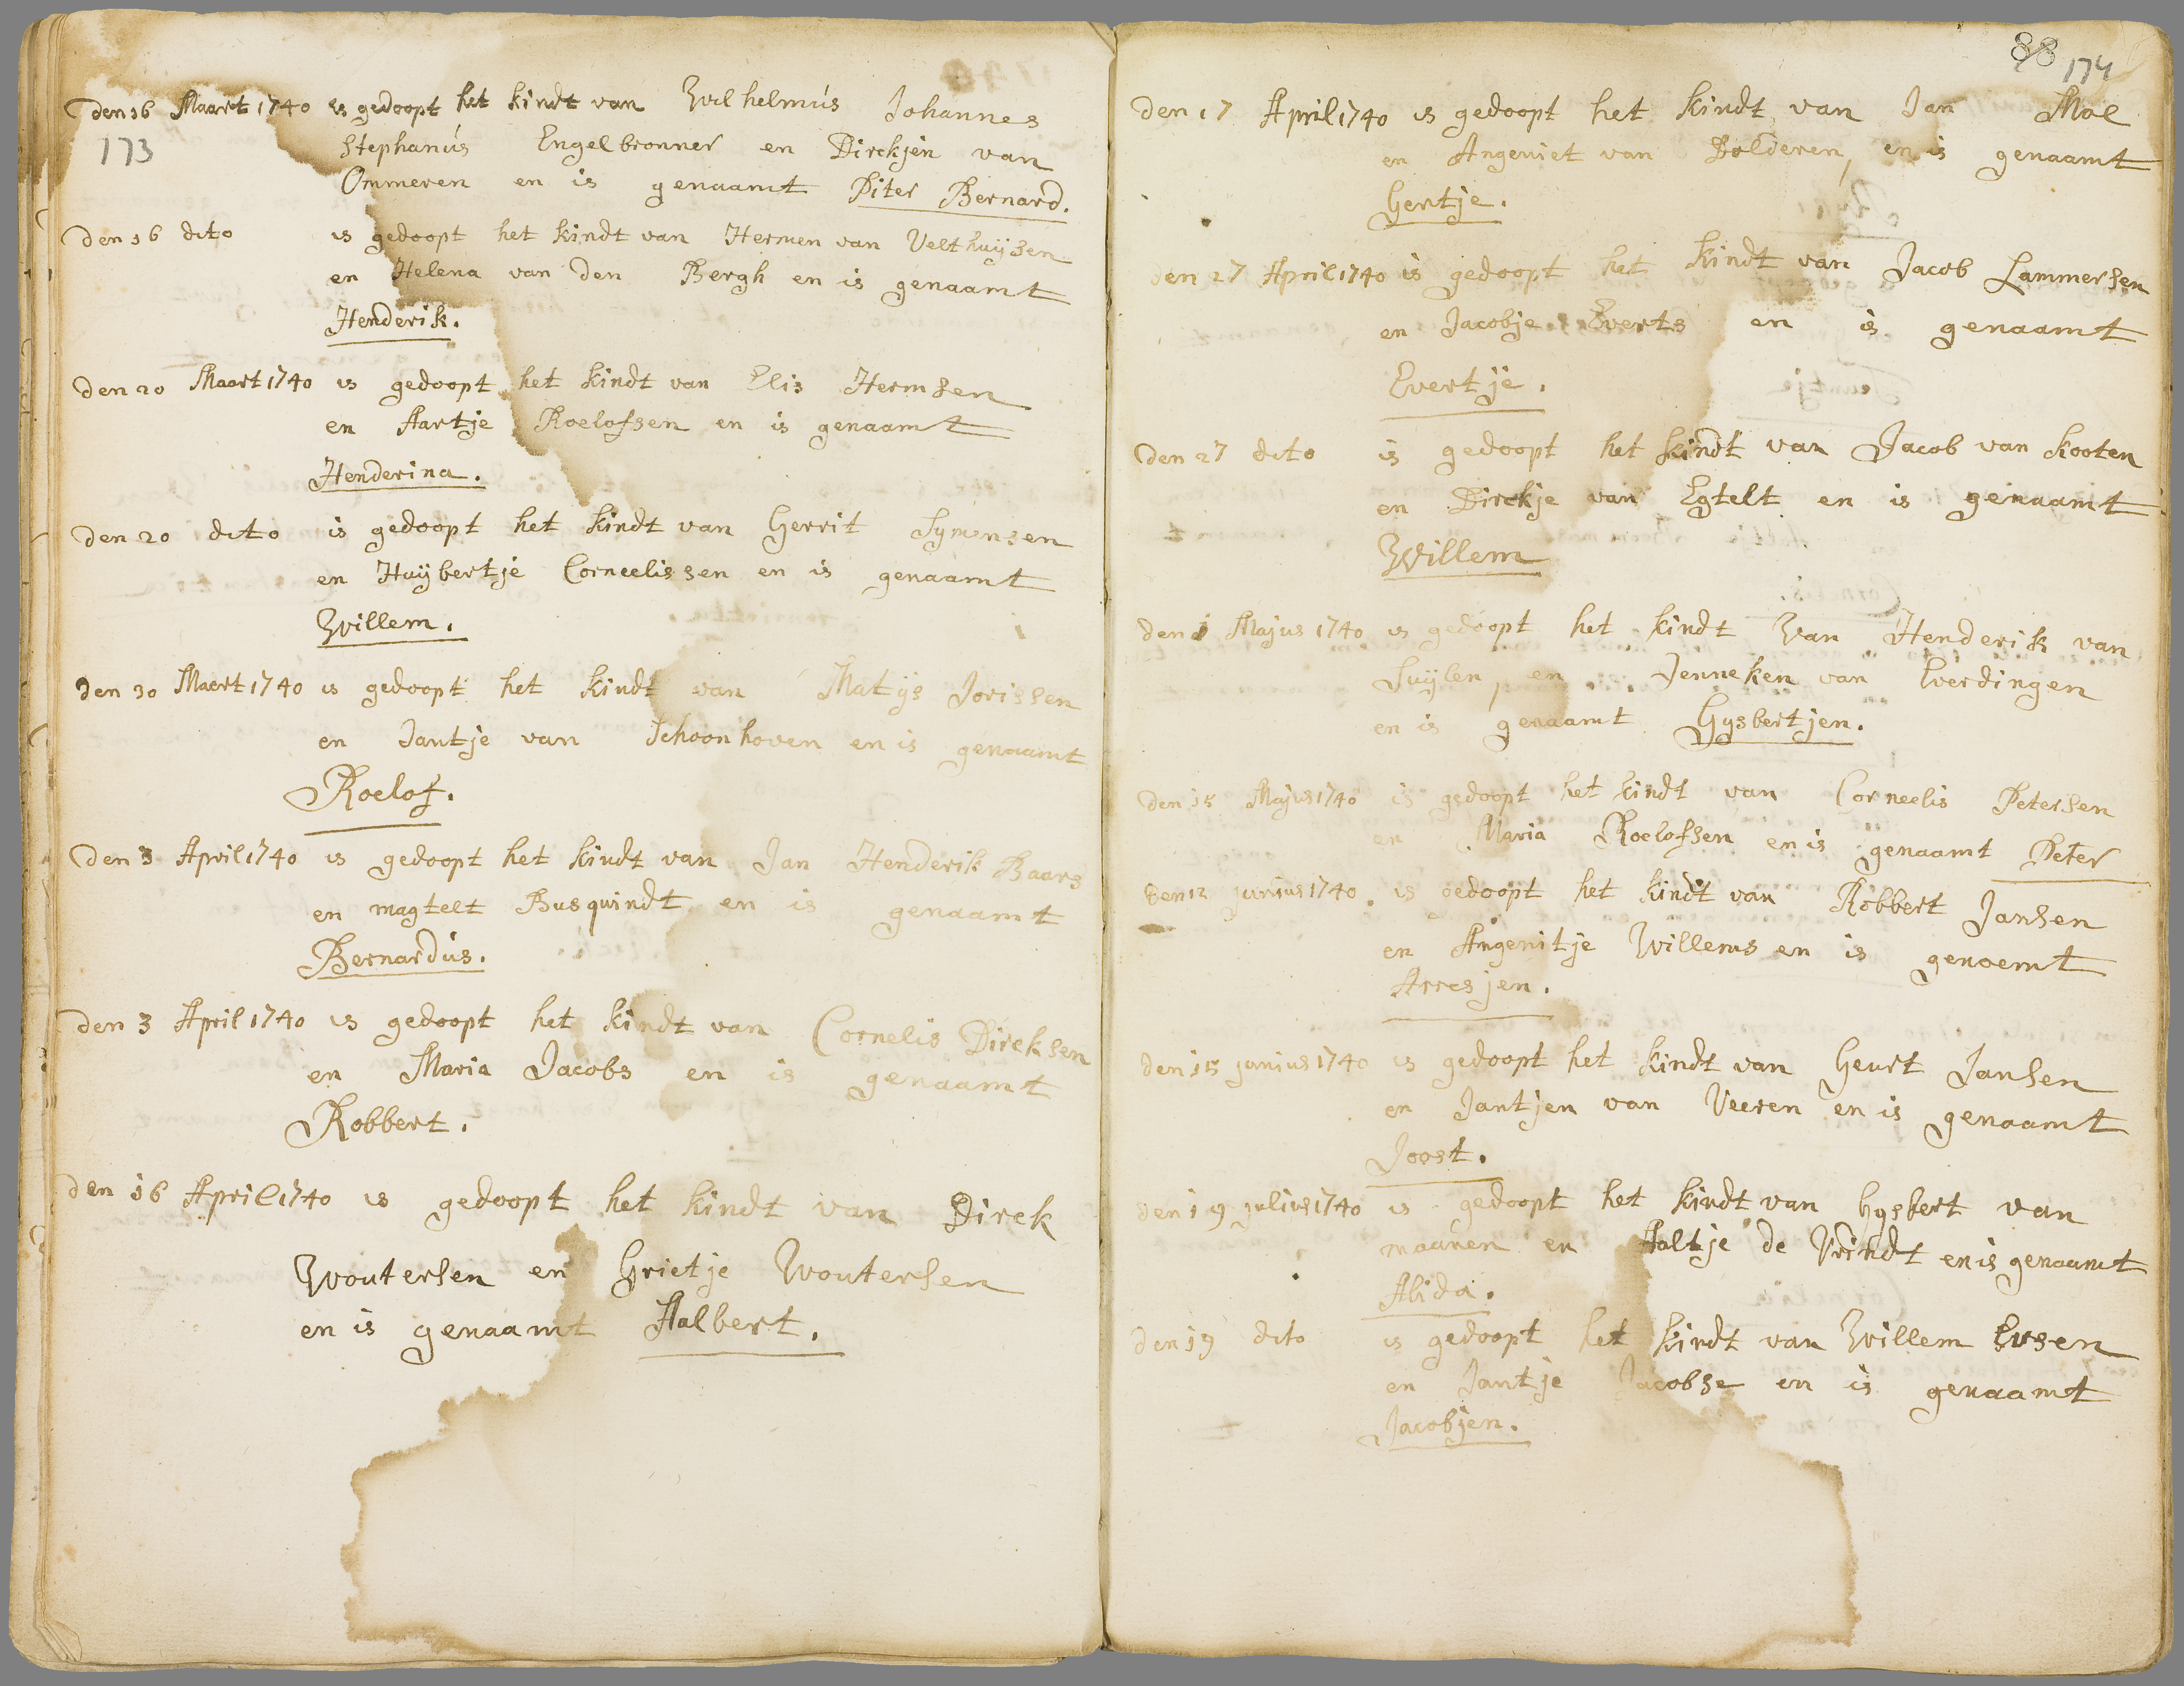 den 16 Maart 1740 is gedoopt het kindt van Wilhelmús Johannes
173
Stephanús Engelbronner en Dirckjen van
Ommeren en is genaamt Piter Bernard.
den 16 dito is gedoopt het kindt van Hermen van Velthuijsen
en Helena van den Bergh en is genaamt
Henderik.
den 20 Maart 1740 is gedoopt het kindt van Elis Hermsen
en Aartje Roelofsen en is genaamt
Henderina.
den 20 dito is gedoopt het kindt van Gerrit Symensen
en Huijbertje Corneelissen en is genaamt
Willem.
den 30 Maert 1740 is gedoopt het kindt van Matijs Jorissen
en Jantje van Schoonhoven en is genaamt
Roelof.
den 3 April 1740 is gedoopt het kindt van Jan Henderik Baars
en magtelt Busquindt en is genaamt
Bernardús.
den 3 April 1740 is gedoopt het kindt van Cornelis Dirksen
en Maria Jacobs en is genaamt
Robbert.
den 16 April 1740 is gedoopt het kindt van Dirck
Woutersen en Grietje Woutersen
en is genaamt Aalbert.
88 174
den 17 April 1740 is gedoopt het kindt van Jan Mol
en Angeniet van Bolderen, en is genaamt
Gertje.
den 27 April 1740 is gedoopt het kindt van Jacob Lammersen
en Jacobje Everts en is genaamt
Evertje.
den 27 dito is gedoopt het kindt van Jacob van Kooten
en Dirckje van Egtelt en is genaamt
Willem
den 1 Majus 1740 is gedoopt het kindt Van Henderik van
Suijlen, en Jenneken van Everdingen
en is genaamt Gysbertjen.
den 15 Majus 1740 is gedoopt het kindt van Corneelis Petersen
en Maria Roelofsen en is genaamt Peter
den 12 junius 1740 is gedoopt het kindt van Robbert Jansen
en Angenitje Willems en is genoemt
Arresjen.
den 15 junius 1740 is gedoopt het kindt van Geurt Jansen
en Jantjen van Veeren en is genaamt
Joost.
den 19 julius 1740 is gedoopt het kindt van Gysbert van
maanen en Aaltje de Vrindt en is genaamt
Alida.
den 19 dito is gedoopt het kindt van Willem Evsen
en Jantje Jacobse en is genaamt
Jacobjen.